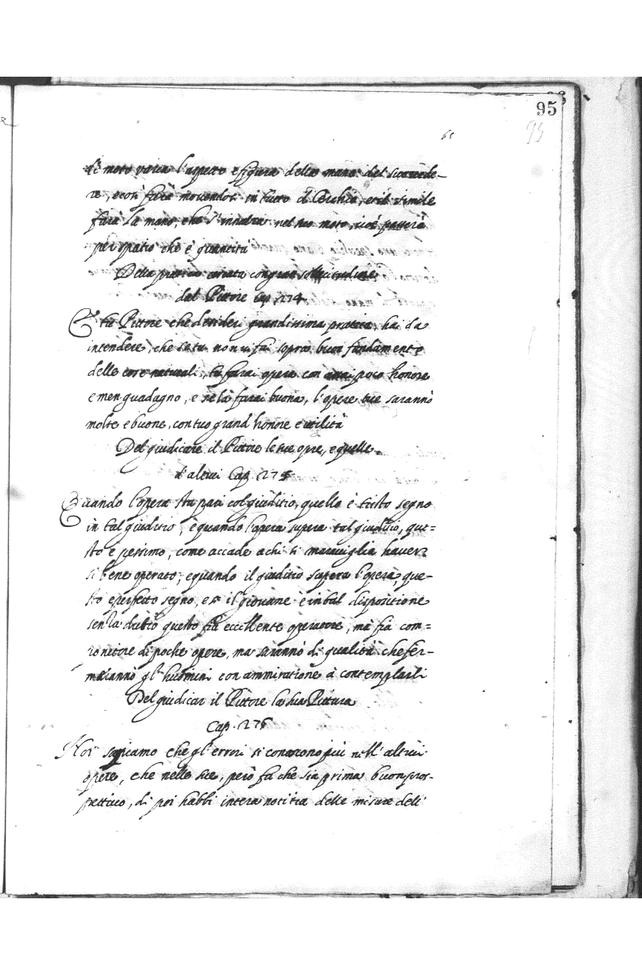 95
93
65
di moto varia l'aspetto e figura della mano del suo vede-
re, e così farà movendosi in tutto il Bichia, et il simile
farà la mano, che l'innalza nel suo moto, cioè passerà
per spatio che è quantità
Della pratica cercata con gran sollecitudine
dal Pittore Cap. 274
E tu Pittore che desideri grandissima pratica, hai da
intendere, che se tu non la fai sopra buon fondamento
delle cose naturali, tu farai opere con assai poco honore
e men guadagno, e se la farai buona, l'opere tue saranno
molte e buone, con tuo grand honore e utilità
Del giudicare il Pittore le sue opre, e quelle
d'altrui Cap. 275
Quando l'opera sta pari col giuditio, quello è tristo segno
in tal giuditio, e quando l'opera supera tal giuditio, que-
sto è pessimo, come accade a chi si maraviglia haver
si bene operato, e quando il giuditio supera l'opera, que-
sto e perfetto segno, e se il giovane è in tal dispositione
senza dubbio questo fia eccellente operatore, ma fia com-
ponitore di poche opere, ma saranno di qualità, che fer-
maranno gl'huomini con ammiratione à contemplarli
Del giudicar il Pittore la sua Pittura
Cap. 276
Noi sappiamo che gl'errori si conoscono più nell'altrui
opere, che nelle sue, però fa che sia prima buon pros-
pettivo, di poi habbi intera notitia delle misure dell'